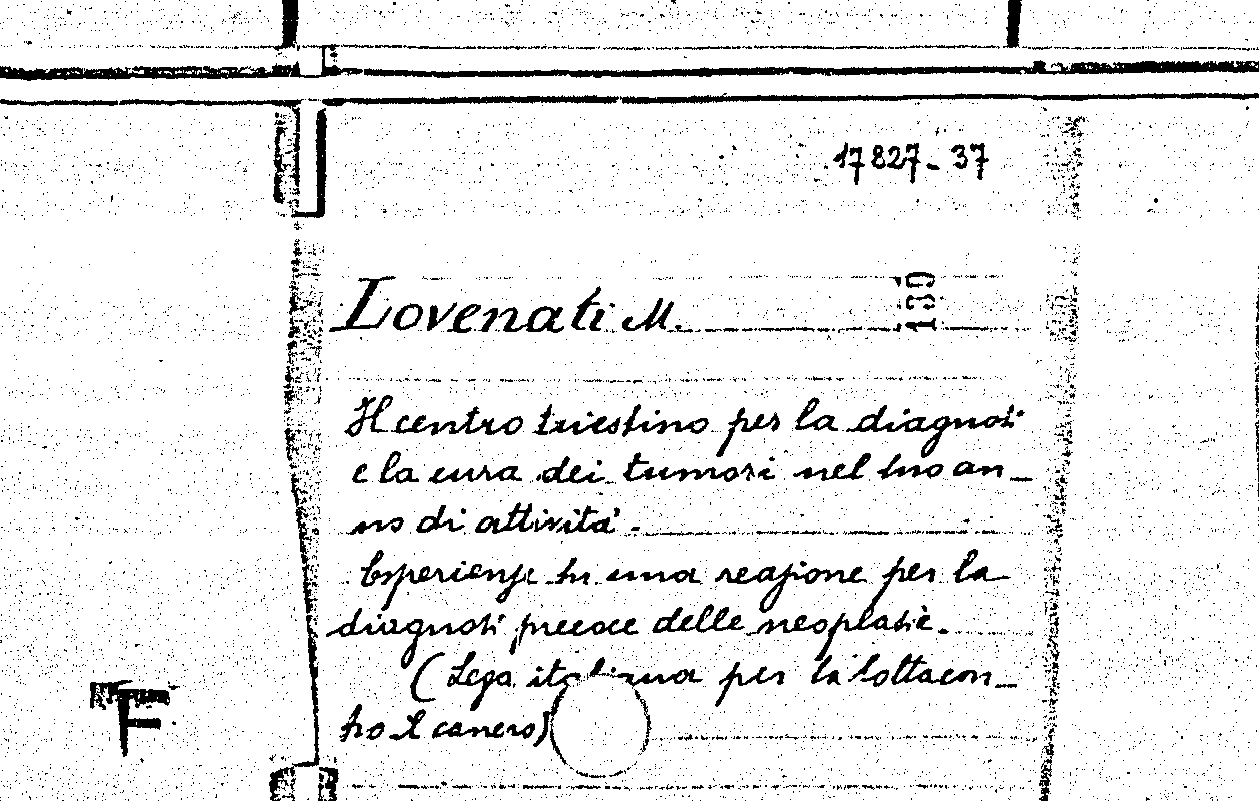 17827-37
Lovenati M.
139
Il centro triestino per la diagnosi
e la cura dei tumori nel suo an_
no di attività.
Esperienze su una reazione per la
diagnosi precoce delle neoplasie.
(Lega italiana per la lotta con_
tro il cancro)
F